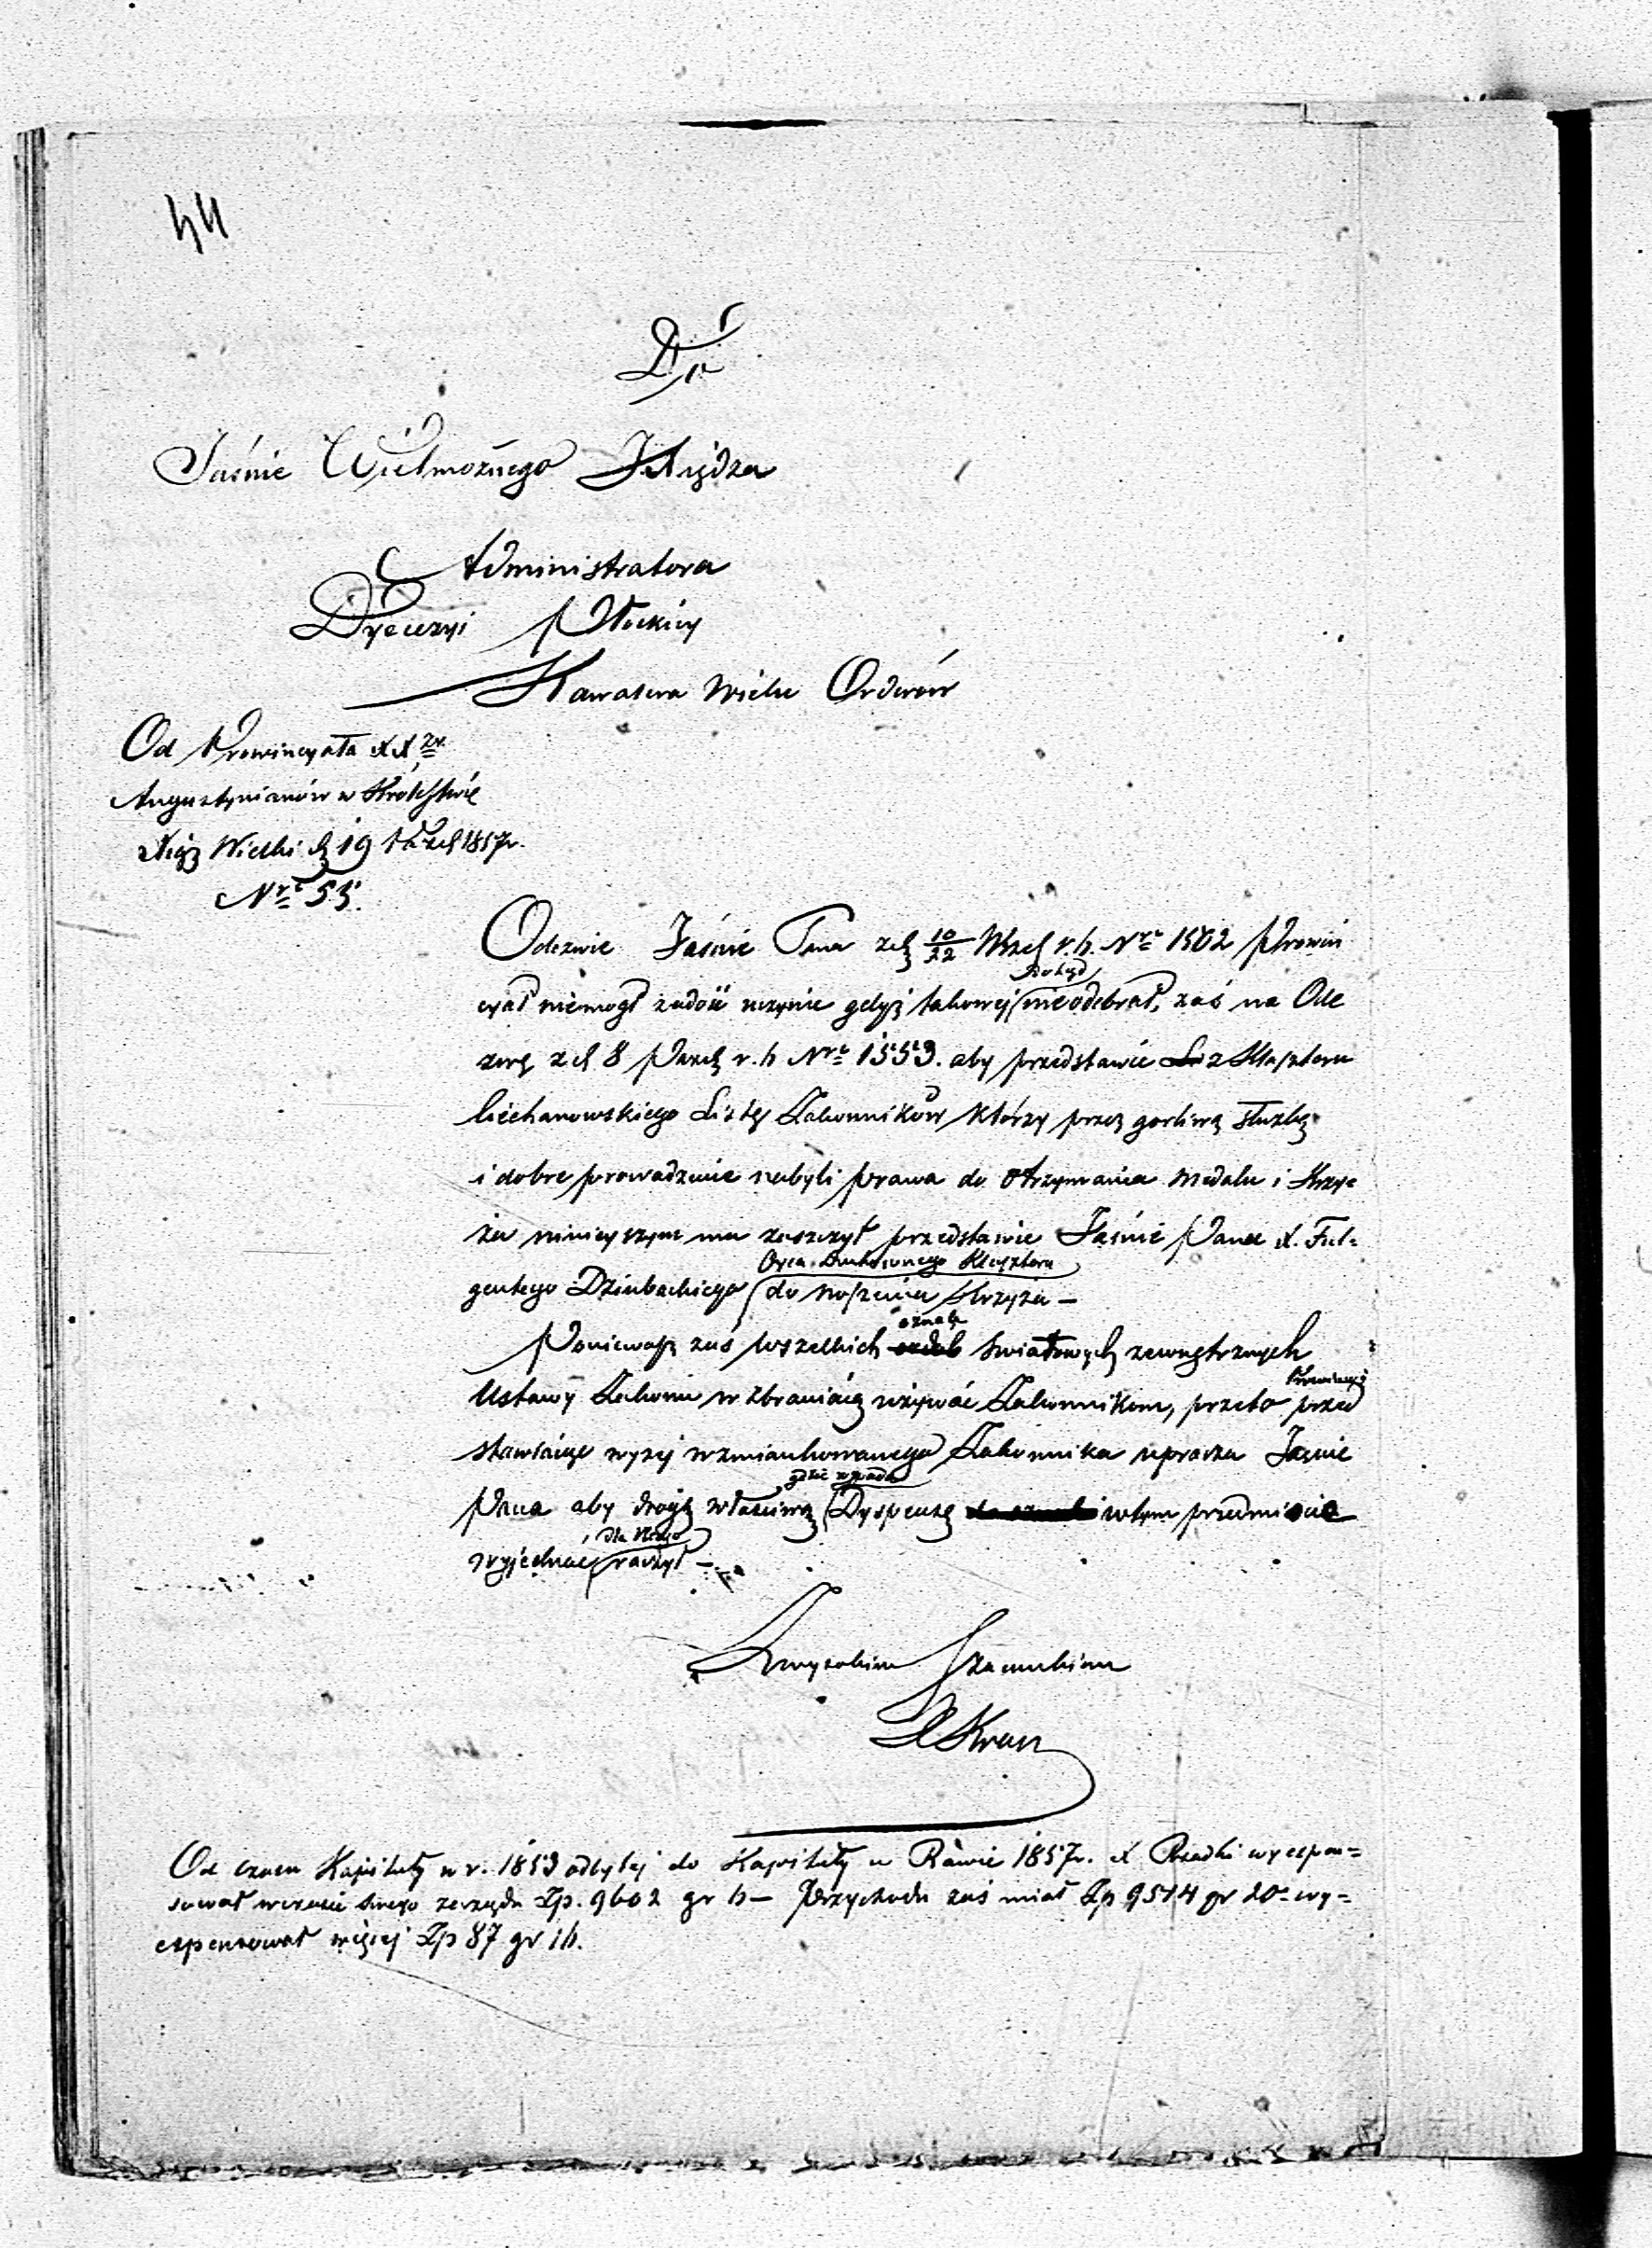 44
Do
Jaśnie Wielmożnego Xiędza
Administratora
Dyecezyi Płockiey
Kawalera wielu Orderów
Od Prowincyała XX
Augustynianów w Królestwie
Xiąż Wielki d. 19 1857r.
Nro 55.
Odezwie Jaśnie Pana z d. 10/22 Wrześ r. b. Nro 1502 Prowin
cyał niemógł zadość uczynić gdyż takowej dotąd nie odebrał, zaś na Ode
zwę z d 8 Paźdź r. b Nro 1553. aby przedstawić z Klasztoru
Ciechanowskiego Listę Zakonników którzy przez gorliwą służbę
i dobre prowadzenie nabyli prawa do otrzymania Medalu i Krzy=
ża ninieyszym ma zaszczyt przedstawić Jaśnie Panu X. Ful=
gentego Dziubackiego Oyca Klasztoru do noszenia Krzyża –
Ponieważ zaś wszelkich oznak światowych zewnętrznych
Ustawy Zakonu wzbraniają używać Zakonnikom, przeto Prowincyał przed
stawiając wyżej wzmiankowanego Zakonnika uprasza Jaśnie
Pana aby drogą właściwą gdzie wypada Dyspensę w tym przedmiocie
wyjednać dla Niego raczył –
Z wysokim Szacunkiem
X Kraus
Od czasu Kapituły w r. 1853 odbytej do Kapituły w Rawie 1857r. X Rzadki wyexpen=
sował w czasie swego zarządu Zp. 9602 gr 6 – Przychodu zaś miał Zp 9514 gr 20 – wy=
expensował więcej Zp 87 gr 16.